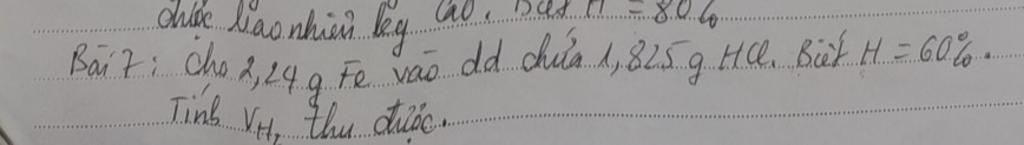 được bao nhiêu kg CaO. Biết H = 80%
Bài 7: Cho 2,24 g Fe vào dd chứa 1,825 g HCl. Biết H = 60%.
Tính VH₂ thu được.